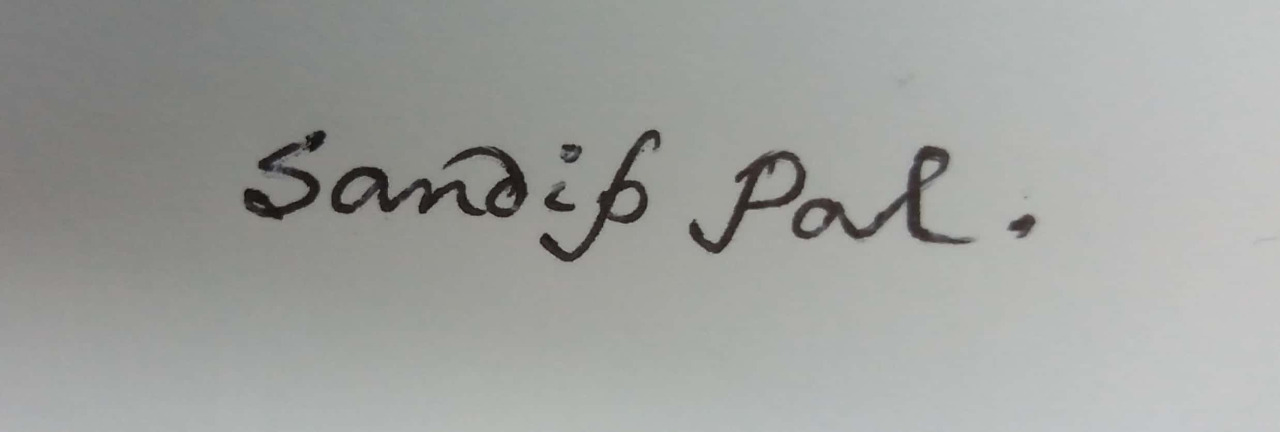 Sandip Pal.